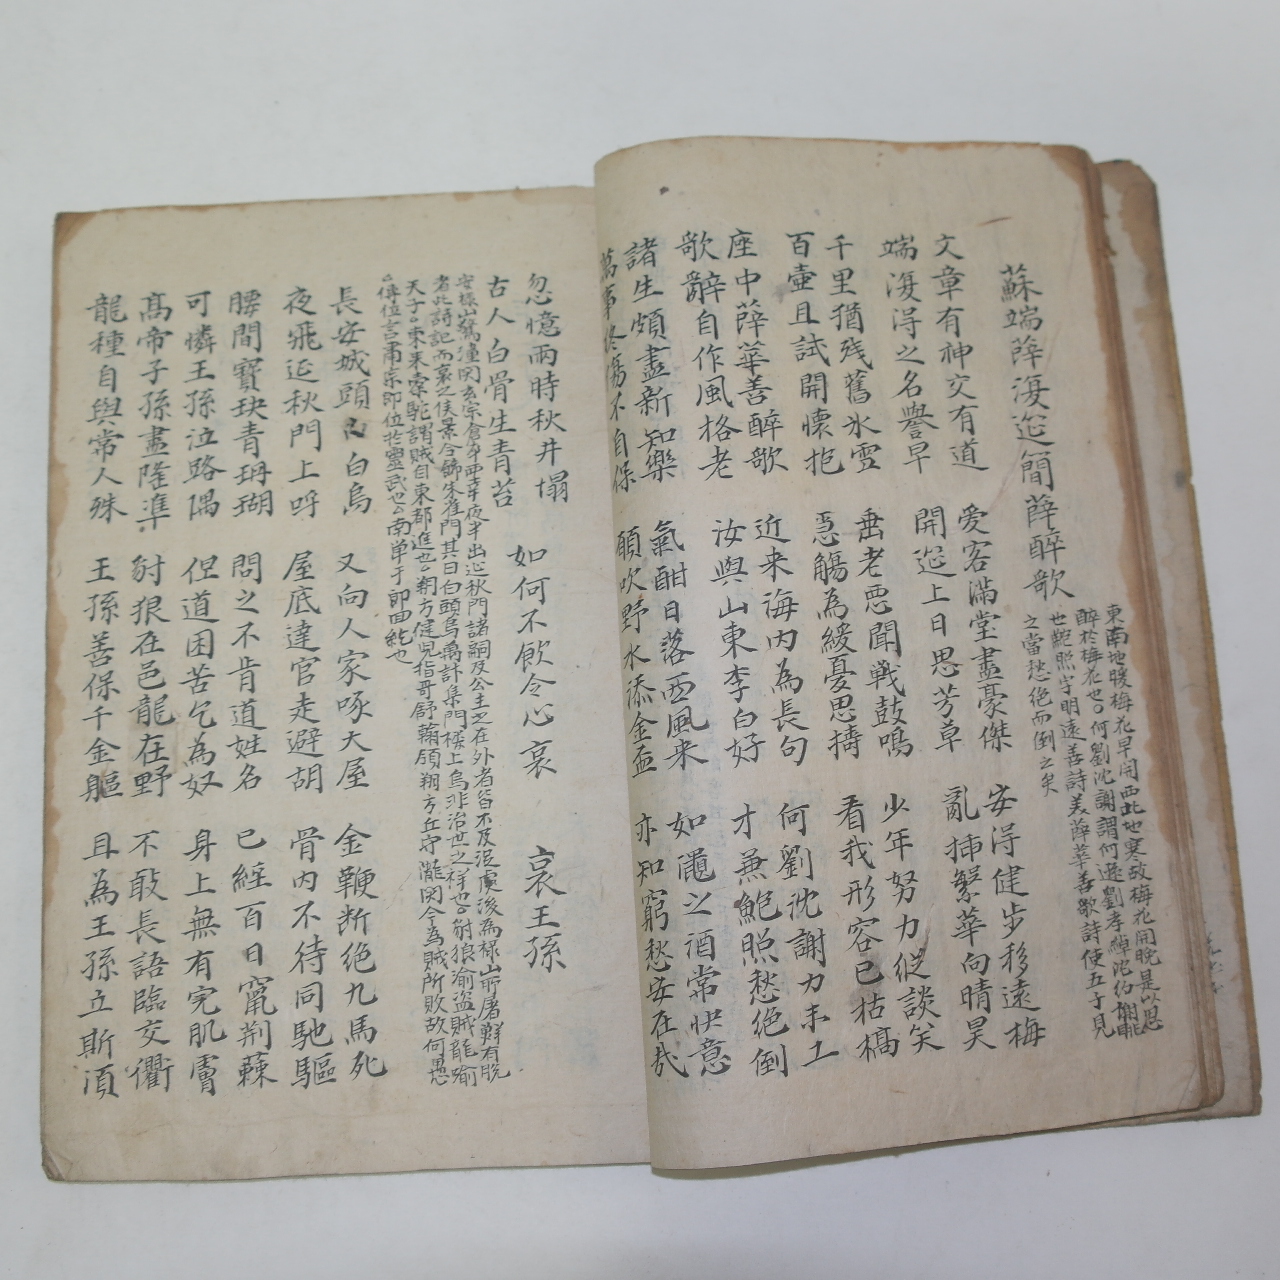 蘇端薛復筵簡薛醉歌
東南地暖梅花早開西北地寒故梅花開晚是以思
醉於梅花也○何劉沈謝謂何遜劉孝綽沈約謝朓
世鮑照字明遠善詩美薛華善歌詩使五子見
之當愁絕而倒之矣
文章有神交有道 愛客滿堂盡豪傑 安得健步移遠梅
端復得之名譽早 開筵上日思芳草 亂揷繁華向晴昊
千里猶残舊氷雪 垂老惡聞戰鼓鳴 少年努力從談笑
百壷且試開懷抱 急觴為緩憂思擣 看我形容已枯槁
座中薛華善醉歌 近来海內為長句 何劉沈謝力未工
歌辭自作風格老 汝與山東李白好 才兼鮑照愁絕倒
諸生頗盡新知樂 氣酣日落西風来 如澠之酒常快意
萬事終傷不自保 願吹野水添金盃 亦知窮愁安在哉
忽憶雨時秋井塌 如何不飲令心哀
古人白骨生青苔
哀王孫
安祿山驚潼関玄宗倉卒西幸夜半出延秋門諸嗣及公主之在外者皆不及沒虜後為祿山所屠鮮有脫
者此詩記而哀之侯景令飾朱雀門其日白頭烏萬計集門樓上烏非治世之祥也○豺狼渝盜賊龍喻
天子○東来橐駝謂賊自東都進也○朔方健児指哥舒翰領朔方兵守潼関今為賊所敗故何愚
○傳位言肅宗即位於靈武也○南單于即回紇也
長安城頭白烏 又向人家啄大屋 金鞭断絕九馬死
夜飛延秋門上呼 屋底達官走避胡 骨肉不待同馳驅
腰間寶玦青珊瑚 問之不肯道姓名 已經百日竄荊棘
可憐王孫泣路隅 但道困苦乞為奴 身上無有完肌膚
髙帝子孫盡隆準 豺狼在邑龍在野 不敢長語臨交衢
龍種自與常人殊 王孫善保千金軀 且為王孫立斯湏